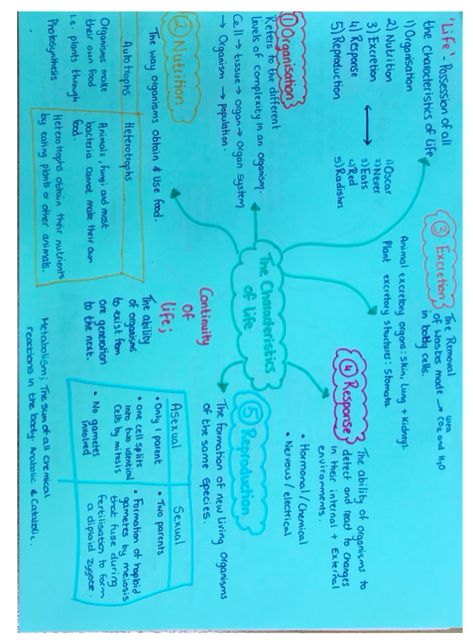 'Life' - Possession of all
the characteristics of life
1) Organisation
2) Nutrition
3) Excretion
4) Response
5) Reproduction
1) Oscar
2) Never
3) Eats
4) Red
5) Radishes
① Organisation
Refers to the different
levels of complexity in an organism.
Cell → tissue → organ → organ system
→ Organism → population.
② Nutrition
The way organisms obtain & Use food.
Autotrophs
Heterotrophs
Organisms make
their own food
i.e. plants through
Photosynthesis
Animals, fungi and most
bacteria cannot make their own
food.
Heterotrophs obtain their nutrients
by eating plants or other animals.
The Characteristics
of life
③ Excretion
The Removal
of wastes made → CO2 and H2O
urea
in body cells.
Animal excretory organs: skin, lung + kidneys.
Plant excretory structures: Stomata
④ Response
The ability of organisms to
detect and react to changes
in their internal + External
environments.
• Hormonal / Chemical
• Nervous / electrical
⑤ Reproduction
The formation of new living organisms
of the same species.
Asexual
Sexual
• Only 1 parent
• one cell splits
into two identical
cells by mitosis
• No gametes
involved
• Two parents
• Formation of haploid
gametes by meiosis
that fuse during
fertilisation to form
a diploid zygote.
Continuity
of
life;
The ability
of organisms
to exist from
one generation
to the next.
Metabolism; The sum of all chemical
reactions in the body. Anabolic & Catabolic.